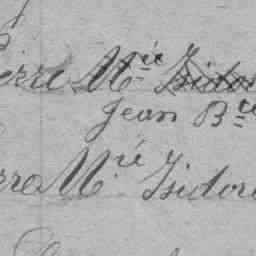 ierre Mie Isidor
Jean Bte
rre Mie Isidor